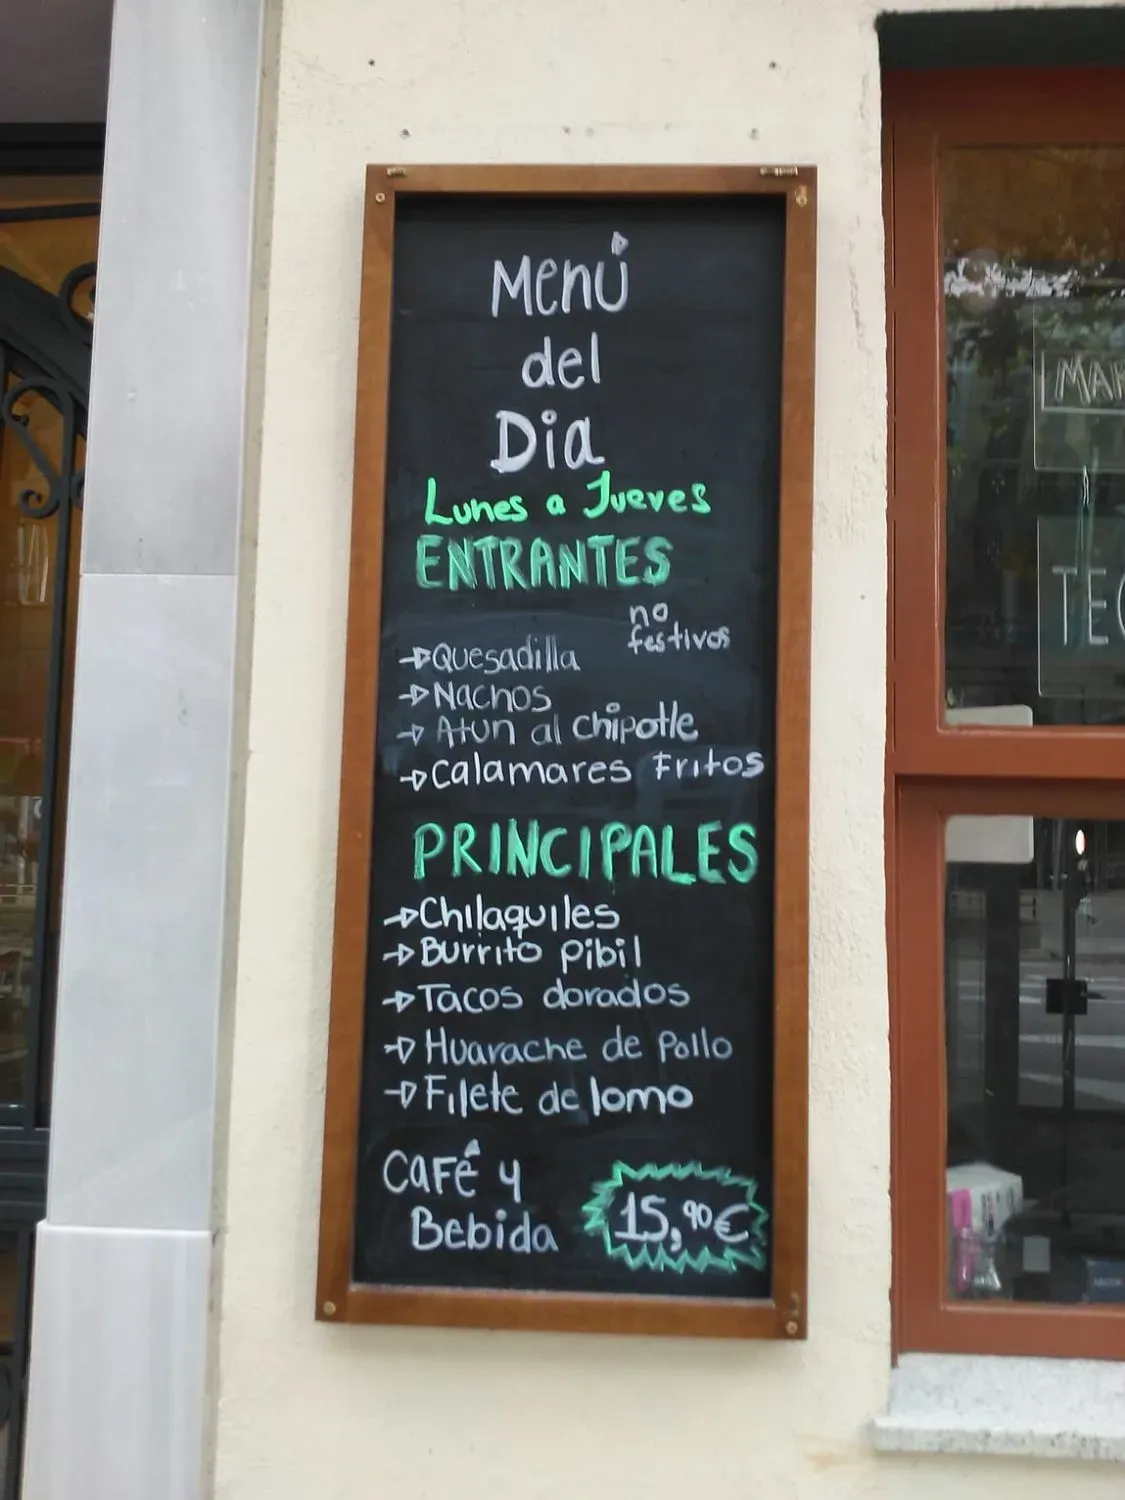 Menú
del
Dia
Lunes a Jueves
ENTRANTES
no
festivos
Quesadilla
Nachos
Atun al chipotle
Calamares Fritos
PRINCIPALES
Chilaquiles
Burrito pibil
Tacos dorados
Huarache de Pollo
Filete de lomo
Café y
Bebida
15,90€